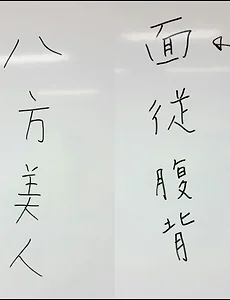 面従腹背
八方美人